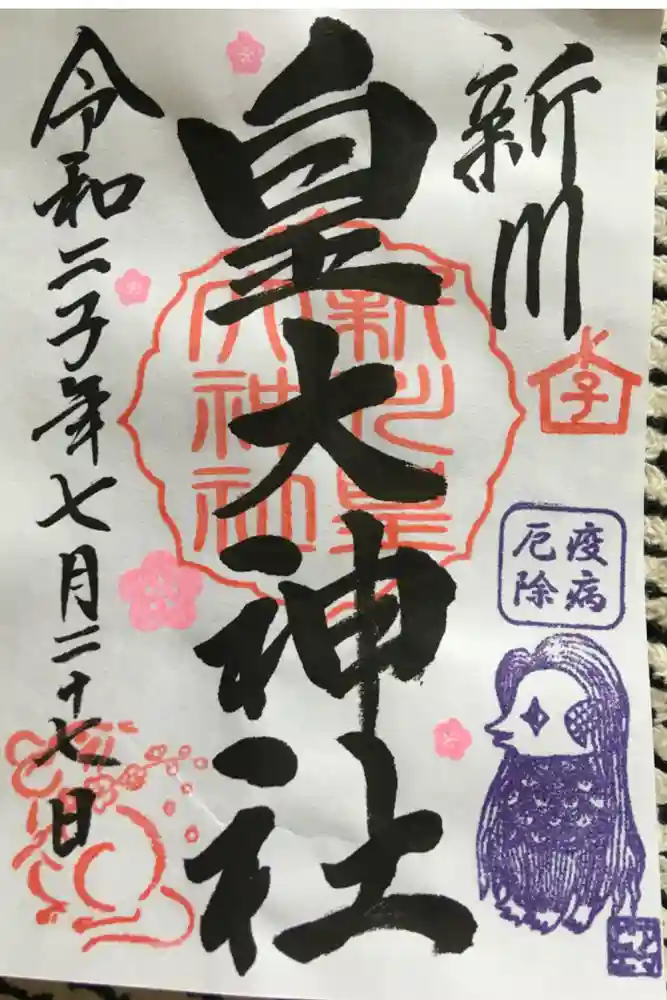 新川
皇大神社
新川皇
大神社
子
疫病
厄除
令和二子年七月二十七日